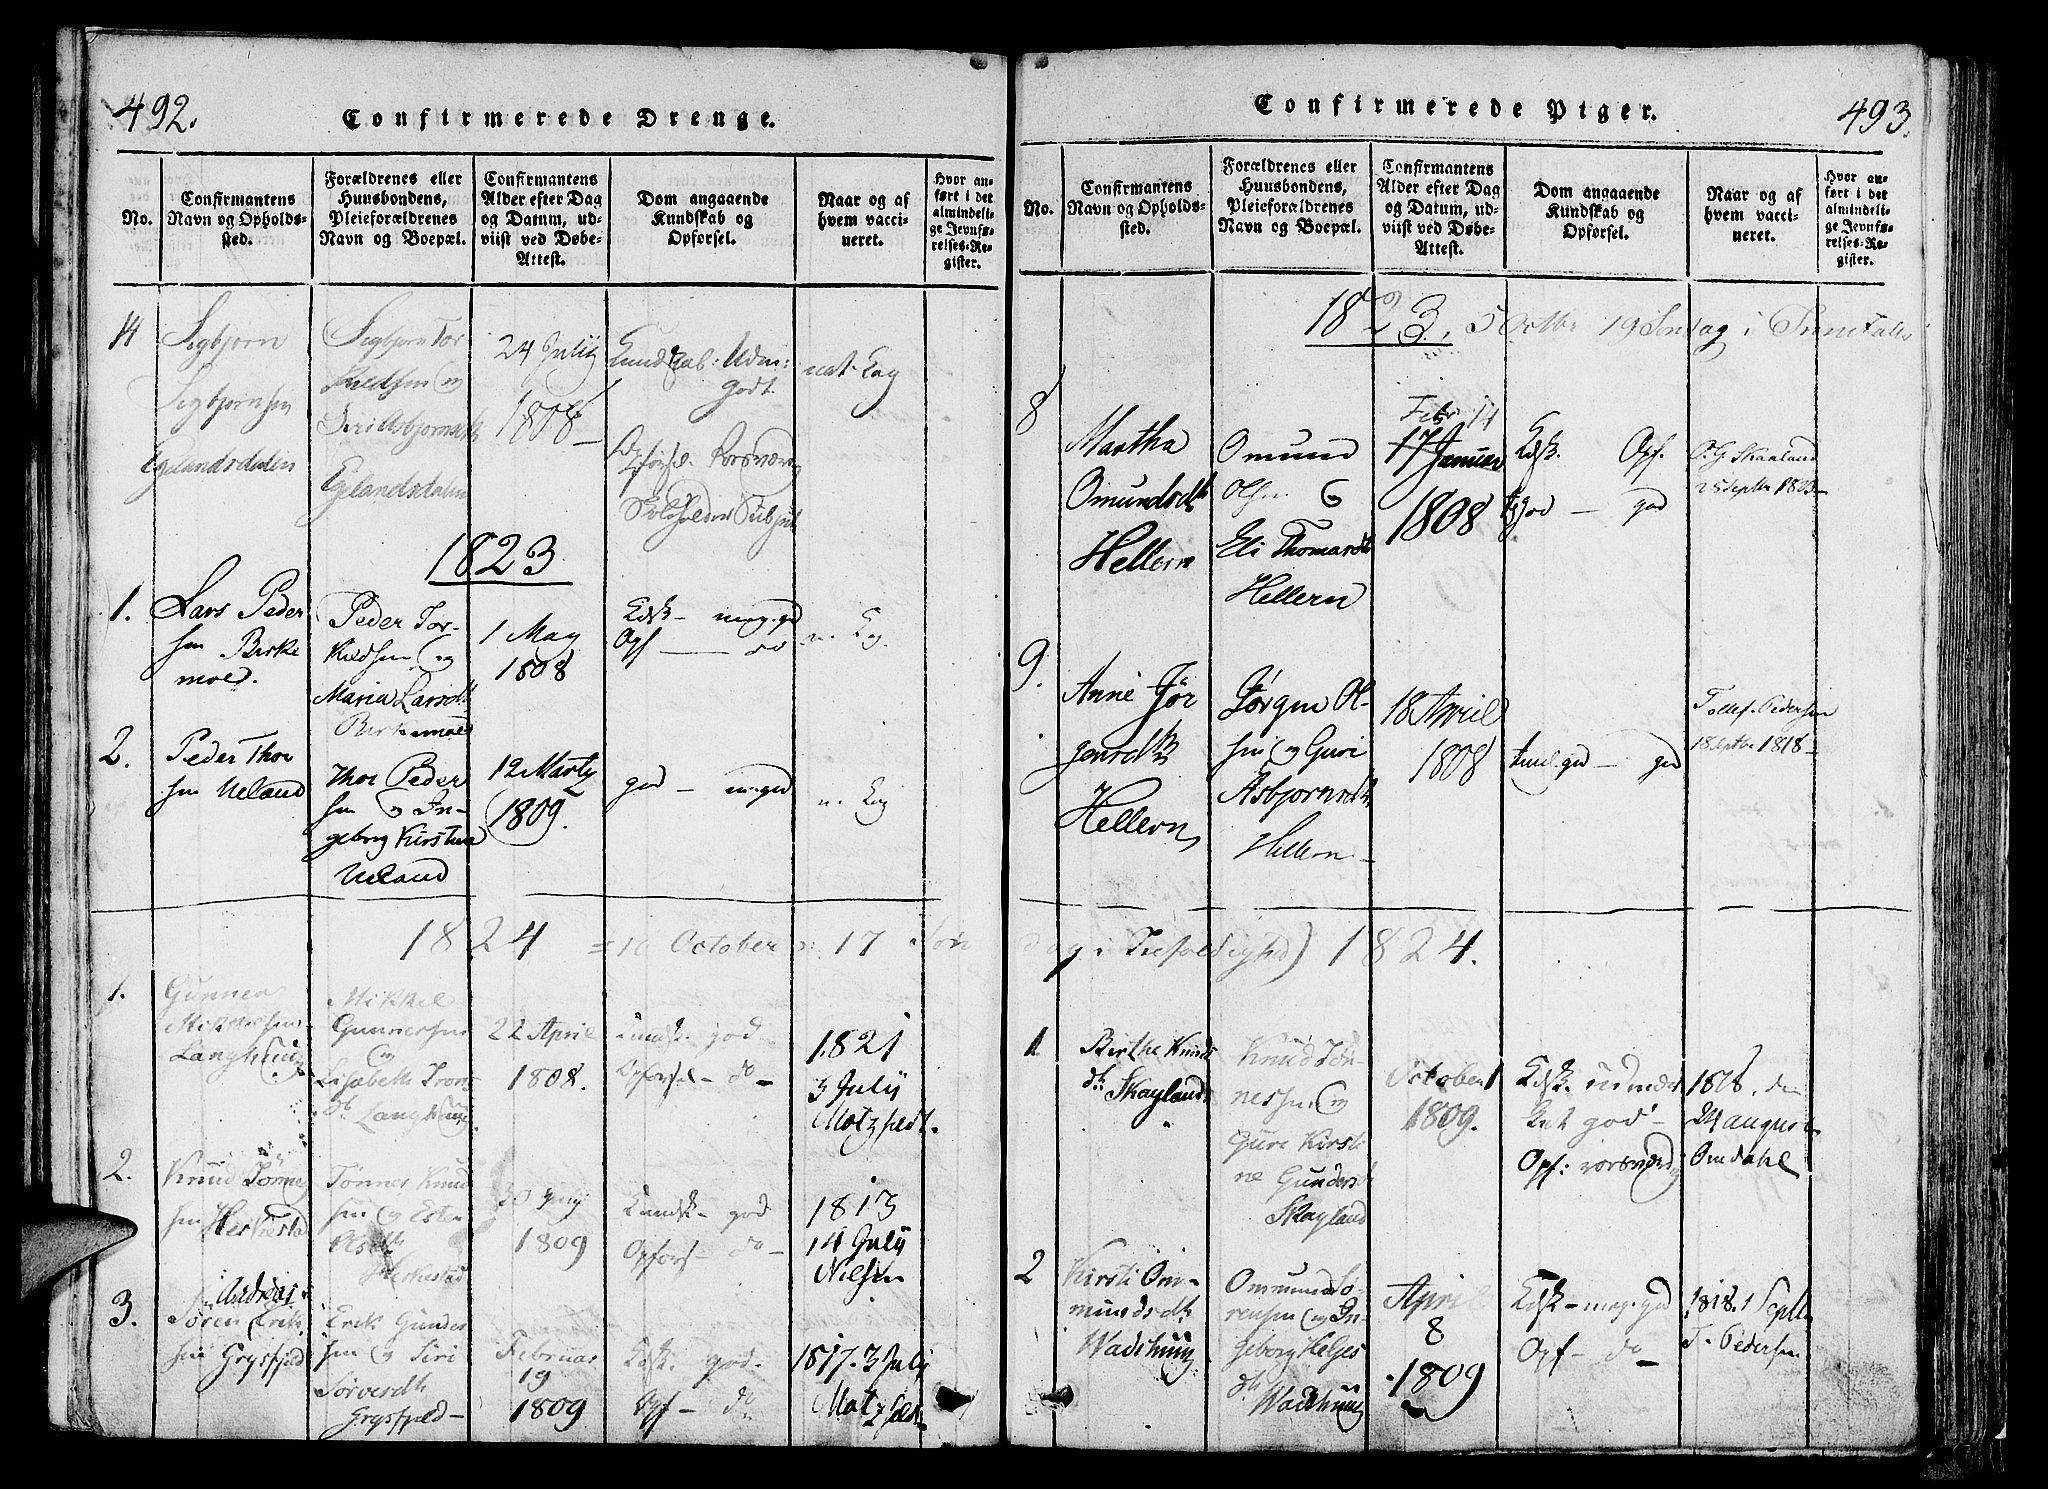 492.
Confirmerede Drenge.
No.
Confirmantens
Navn og Opholds-
sted.
Forældrenes eller
Huusbondens,
Pleieforældrenes
Navn og Boepæl.
Confirmantens
Alder efter Dag
og Datum, ud-
viist ved Døbe-
Attest.
Dom angaaende
Kundskab og
Opførsel.
Naar og af
hvem vacci-
neret.
Hvor an-
ført i det
almindeli-
ge Jevnfø-
relses-Re-
gister.
14
Sigbjørn
Sigbjørnsen
Egelandsdalen
Sigbjørn Tor
kildsen og
Siri Asbjørnsdt
Egelandsdalen
24 July
1808
Kundskab: Udm:
godt
nat. Kop
1823
1.
Lars Peder
sen Birke
moed.
Peder Tor-
kildsen og
Maria Larsdt
Birkemoed
1 May
1808
Kdsk - meg. gd
Opf — do
n. Kop.
2.
Peder Thor
sen Ueland
Thor Peder
sen og In-
geborg Kirstine
Ueland
12 Marty
1809.
god - meg gd
n. Kop
1824 = 10 October : 17 Søn
1.
Gunner
Mikkelsen
Langhuug
Mikkel
Gunnersen
og
Lisabeth Tron
dt Langhuug
22 April
1808.
Kundsk. god
Opførsel - do -
1821
3 July
Motzfeldt.
2.
Knud Tønne
sen Herrestad
Tønnes Knud
sen og
Herrestad
1809
Kundsk - god
Opførs - do -
1813
14 July
Nilsen
3.
Andreas
Søren Erik
sen Grysfjeld
Erik Gunder
sen og Siri
Grysfjeld -
Februar
19
1809
Kdsk. god.
Opf - do
1817. 3 July
Motzfeldt
Confirmerede Piger.
493.
No.
Confirmantens
Navn og Opholds-
sted.
Forældrenes eller
Huusbondens,
Pleieforældrenes
Navn og Boepæl.
Confirmantens
Alder efter Dag
og Datum, ud-
viist ved Døbe-
Attest.
Dom angaaende
Kundskab og
Opførsel.
Naar og af
hvem vacci-
neret.
Hvor an-
ført i det
almindeli-
ge Jevnfø-
relses-Re-
gister.
1823. 5 Octbr 19 Søndag i
8
Martha
Omundsdt
Hellern
Omund
Olsen og
Eli Thomasdt
Hellern
Febr 14
17 Januar
1808
Kdsk. Opf.
god — god
O. G. Skaaland
25 Septbr 1823
9.
Anne Jør
gensdt
Hellern
Jørgen Ol-
sen og Guri
Asbjørnsdt
Hellern -
18 April
1808
gd — gd
Tollef Pedersen
1818 -
dag i Trefoldighed) 1824.
1
Birthe Knuds
dt Skayland
Knud Tøn-
nesen og
Gure Kirsti
ne Gunders
Skayland
October 1
1809.
Kdsk. udmær
ket god -
Opf: rosværdig
1818. den
24 august
Omdahl
2
Kirsti Om-
mundsdt
Wadshuug
Ommund Sø-
rensen og In-
geborg Helges
dt Wadshuug
April
8
1809
Kdsk - meg. gd
Opf - do -
1818. 1 Septbr
T. Pedersen